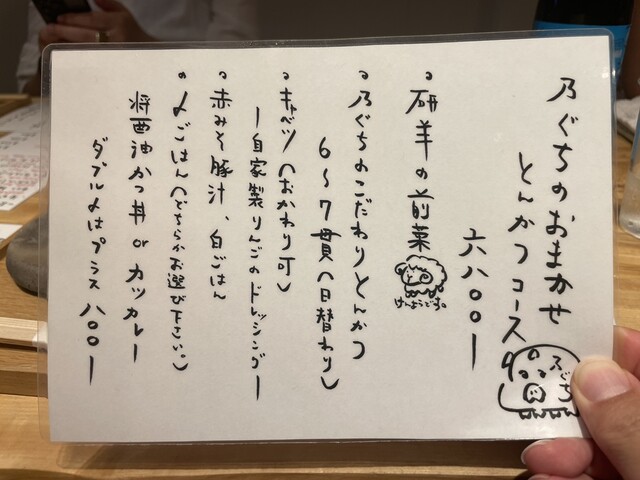 乃ぐちのおまかせ
とんかつコース
六八〇〇ー
乃ぐち
。研羊の前菜
けんようです。
。乃ぐちのこだわりとんかつ
6〜7貫(日替わり)
。キャベツ(おかわり可)
ー自家製りんごのドレッシングー
。赤みそ豚汁、白ごはん
。〆ごはん(どちらかお選び下さい。)
将酉油かつ丼 or カツカレー
ダブル〆はプラス八〇〇ー